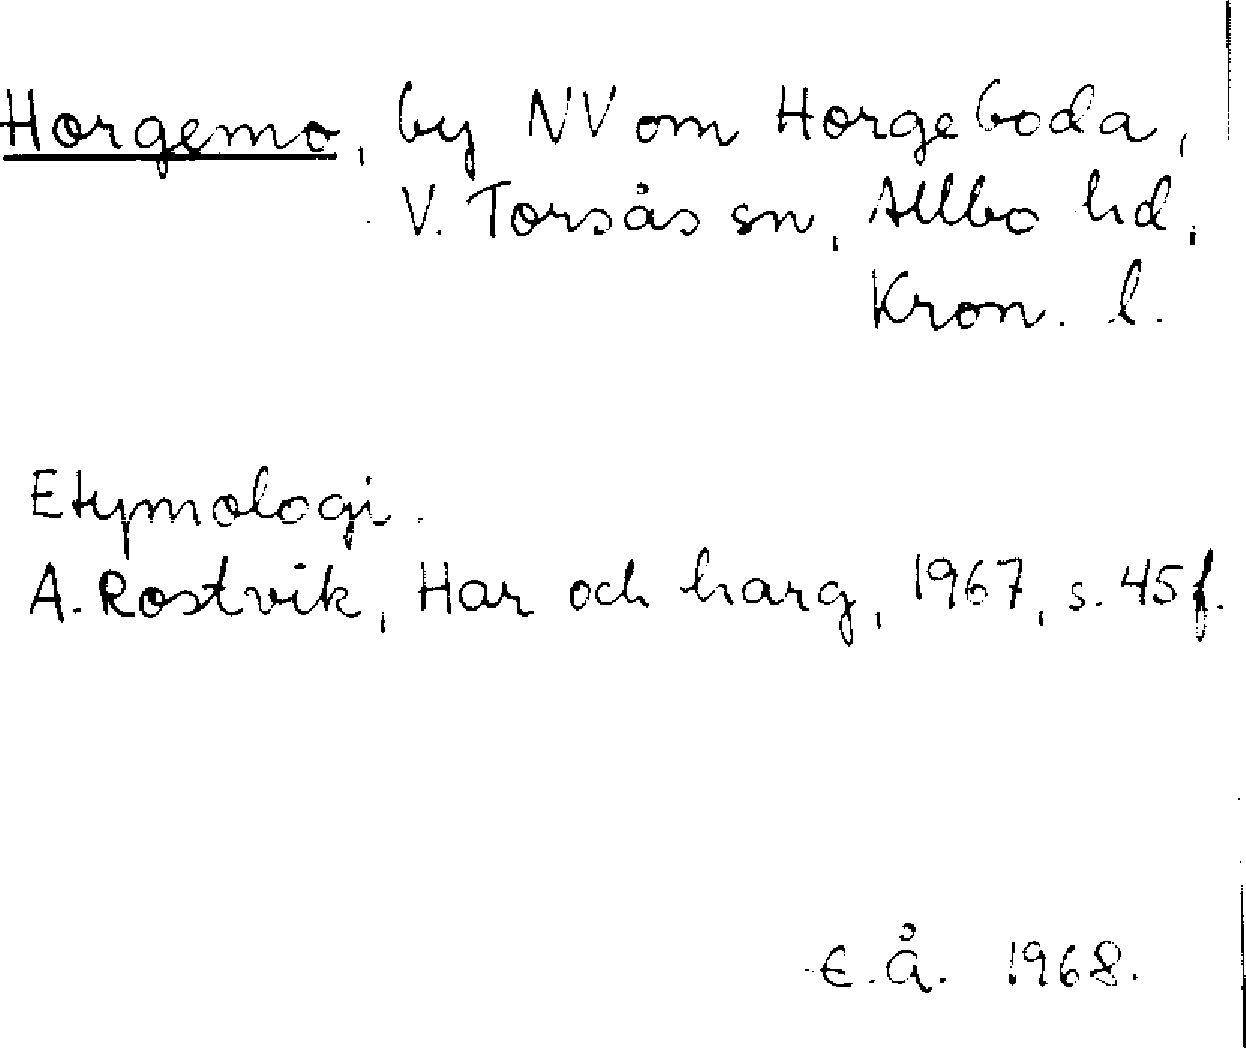 Horgemo, by NV om Horgeboda,
V. Torsås sn, Allbo hd,
Kron. l.
Etymologi.
A. Rostvik, Har och harg, 1967, s. 45 f.
E.Å. 1968.